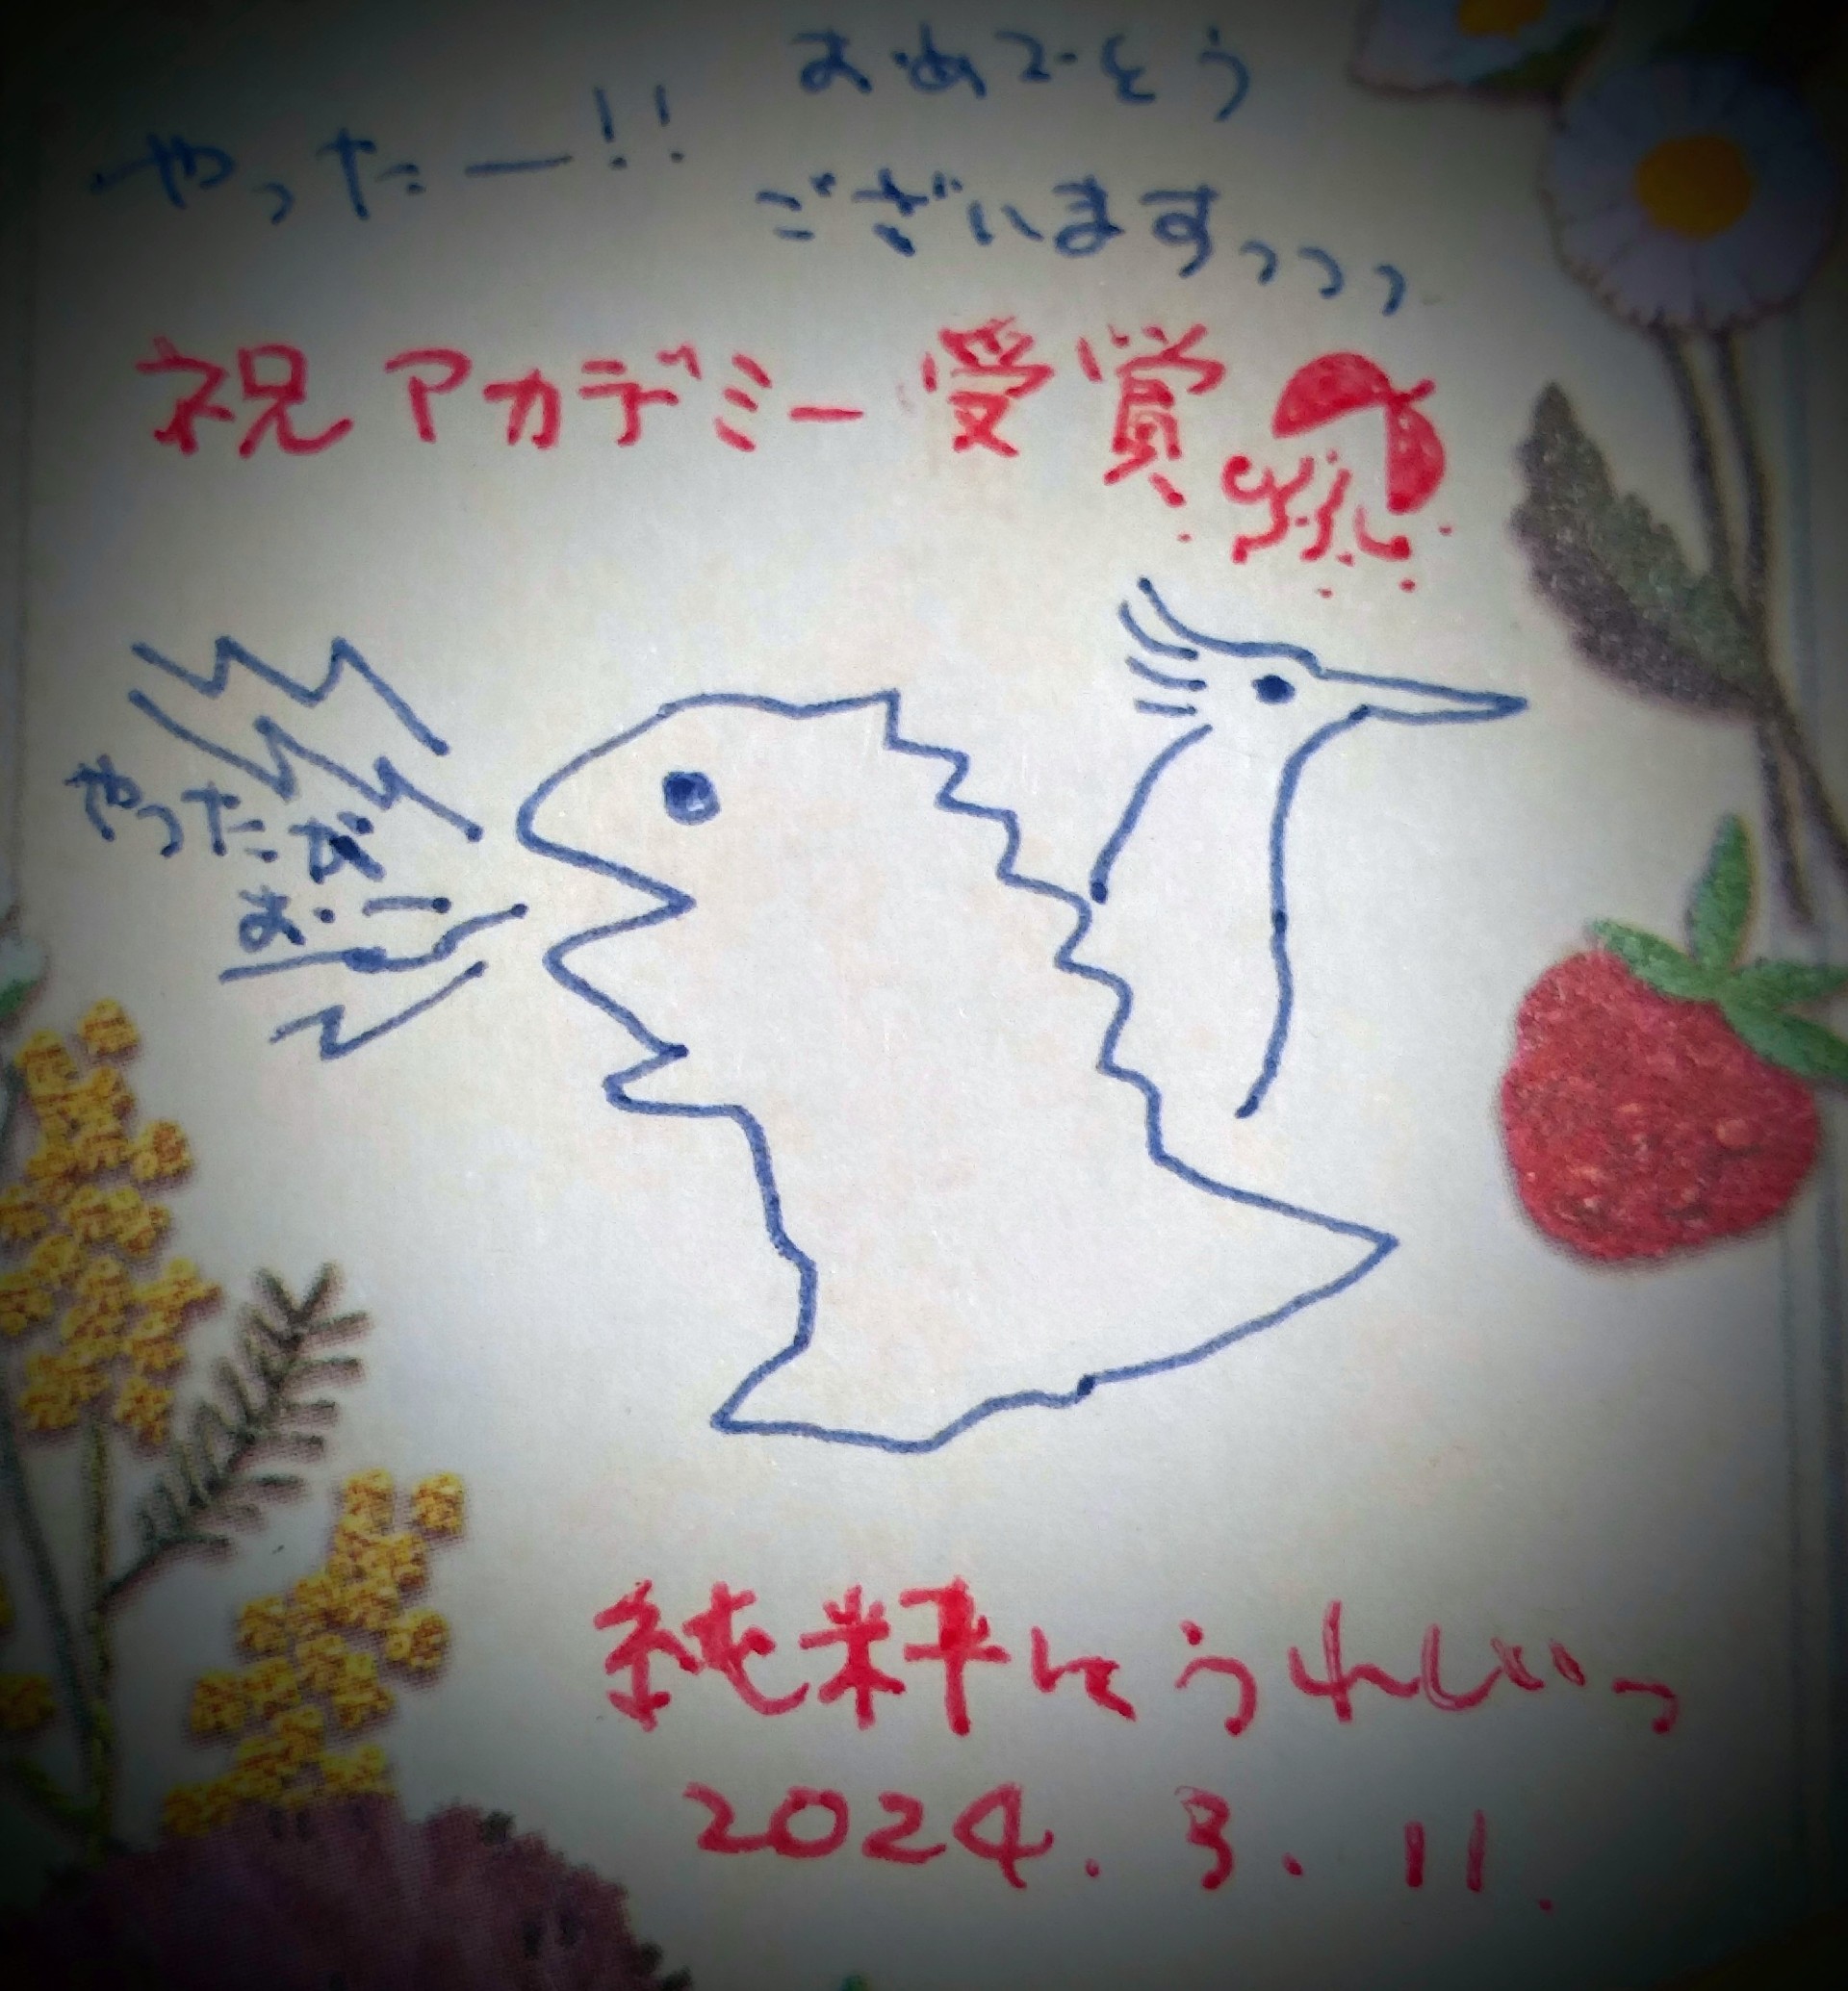 やったー!!
おめでとう
ございますっっっ
祝アカデミー受賞
やったが
お・
純粋にうれしいっ
2024.3.11.